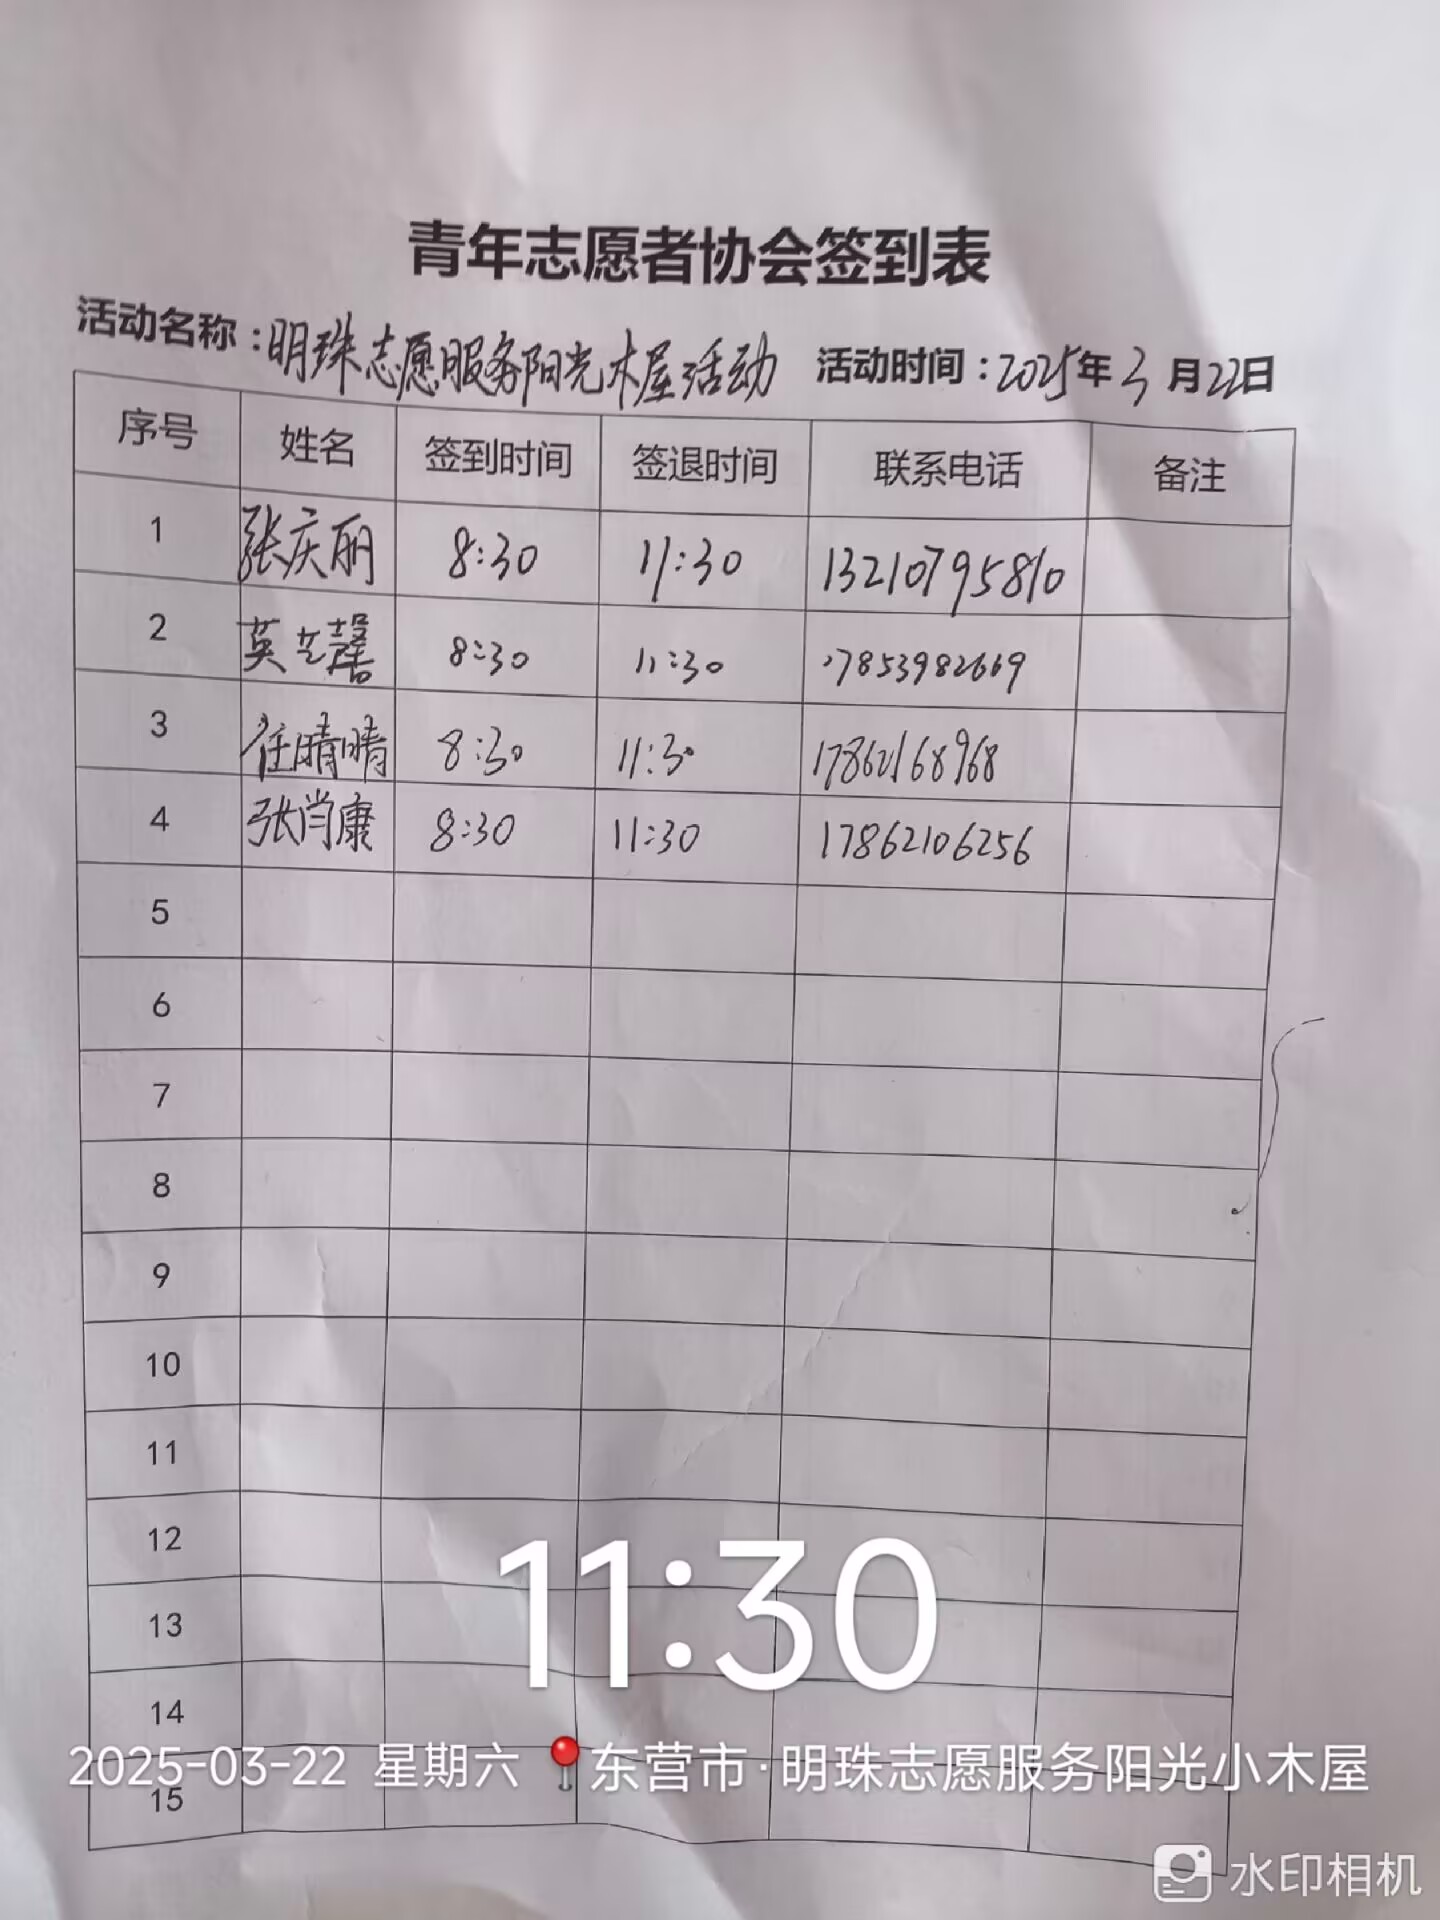 青年志愿者协会签到表
活动名称：明珠志愿服务阳光木屋活动 活动时间：2025年3月22日
序号 姓名 签到时间 签退时间 联系电话 备注
1 张庆丽 8:30 11:30 13210795810
2 8:30 11:30 17853982669
3 任晴晴 8:30 11:30 17862168968
4 张肖康 8:30 11:30 17862106256
5
6
7
8
9
10
11
12
13
14
15
11:30
2025-03-22 星期六 东营市·明珠志愿服务阳光小木屋
水印相机